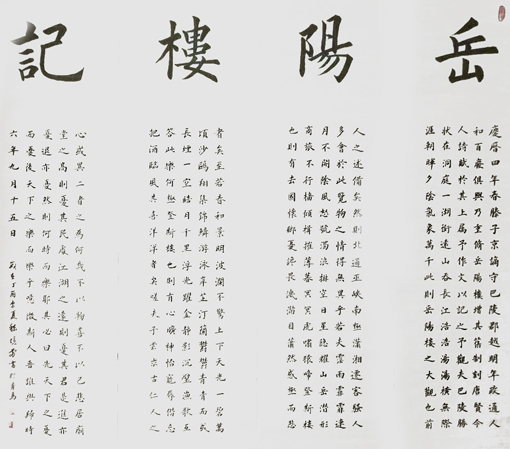 岳陽樓記
慶曆四年春滕子京謫守巴陵郡越明年政通人
和百廢俱興乃重脩岳陽樓增其舊制刻唐賢今
人詩賦於其上屬予作文以記之予觀夫巴陵勝
狀在洞庭一湖銜遠山吞長江浩浩湯湯橫無際
涯朝暉夕陰氣象萬千此則岳陽樓之大觀也前
人之述備矣然則北通巫峽南極瀟湘遷客騷人
多會於此覽物之情得無異乎若夫霪雨霏霏連
月不開陰風怒號濁浪排空日星隱耀山岳潛形
商旅不行檣傾楫摧薄暮冥冥虎嘯猿啼登斯樓
也則有去國懷鄉憂讒畏譏滿目蕭然感極而悲
者矣至若春和景明波瀾不驚上下天光一碧萬
頃沙鷗翔集錦鱗游泳岸芷汀蘭鬱鬱青青而或
長煙一空皓月千里浮光躍金靜影沉璧漁歌互
答此樂何極登斯樓也則有心曠神怡寵辱偕忘
把酒臨風其喜洋洋者矣嗟夫予嘗求古仁人之
心或異二者之為何哉不以物喜不以己悲居廟
堂之高則憂其民處江湖之遠則憂其君是進亦
憂退亦憂然則何時而樂耶其必曰先天下之憂
而憂後天下之樂而樂乎噫微斯人吾誰與歸時
六年九月十五日